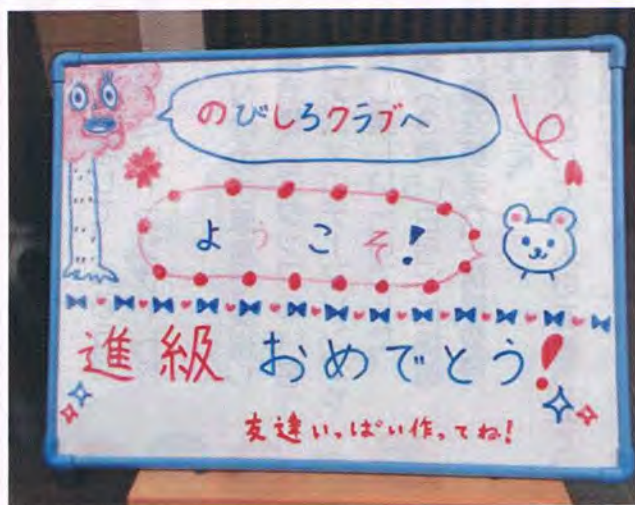 のびしろクラブへ
ようこそ!
進級 おめでとう!
友達いっぱい作ってね!